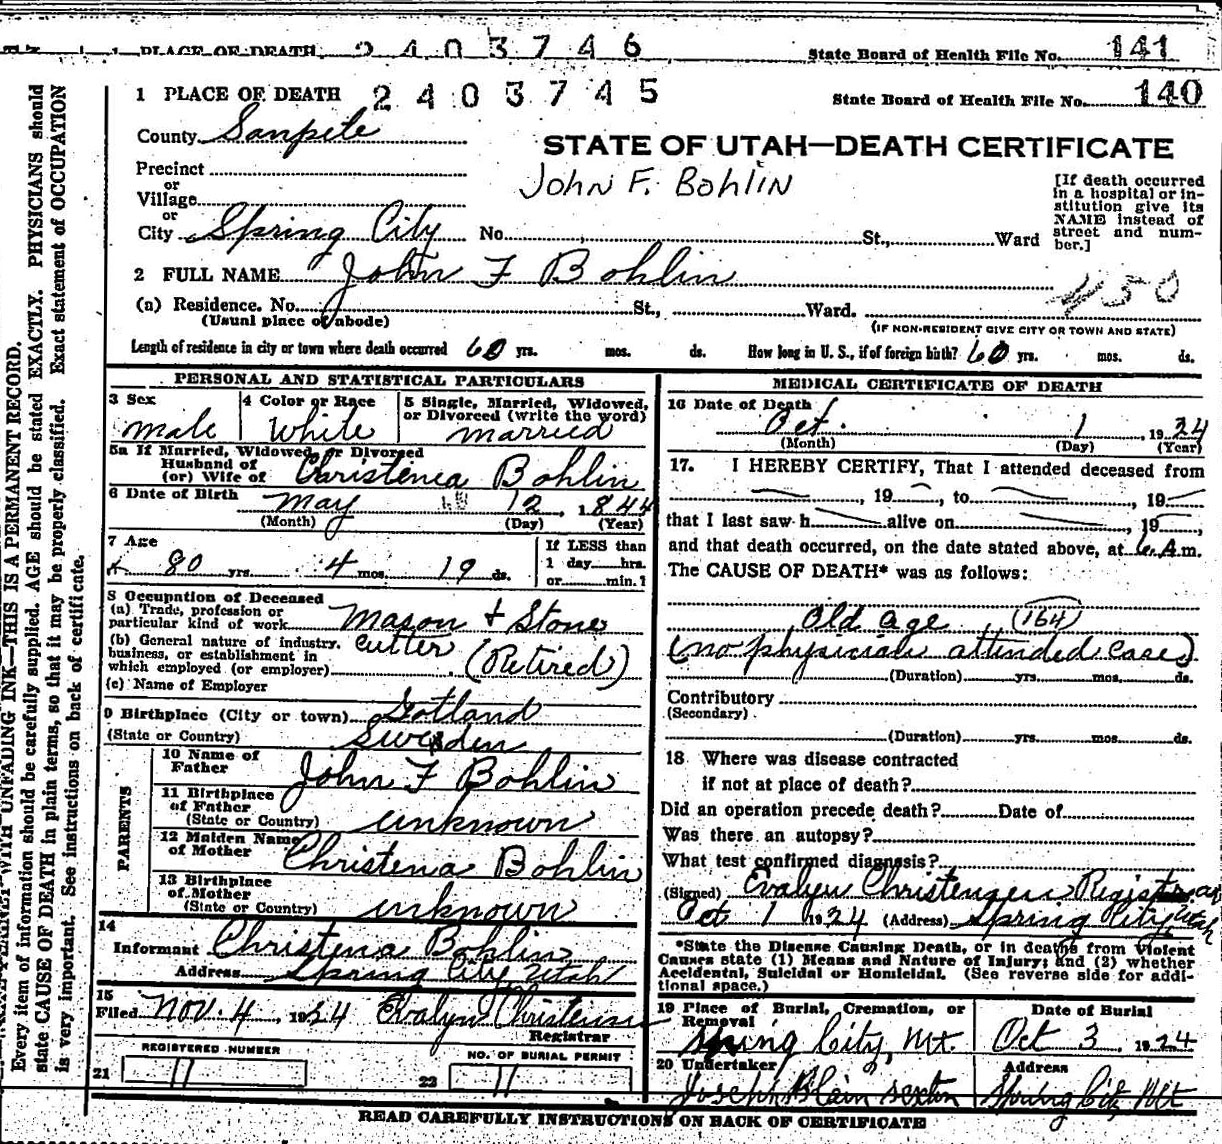 1 PLACE OF DEATH 2403746 State Board of Health File No. 141
1 PLACE OF DEATH 2403745 State Board of Health File No. 140
County Sanpete
STATE OF UTAH—DEATH CERTIFICATE
Precinct
or
Village
or
City Spring City No. St., Ward
John F. Bohlin
[If death occurred
in a hospital or in-
stitution give its
NAME instead of
street and num-
ber.]
2 FULL NAME John F Bohlin
450
(a) Residence. No. St., Ward.
(Usual place of abode)
(IF NON-RESIDENT GIVE CITY OR TOWN AND STATE)
Length of residence in city or town where death occurred 60 yrs. mos. ds. How long in U. S., if of foreign birth? 60 yrs. mos. ds.
PERSONAL AND STATISTICAL PARTICULARS
3 Sex
male
4 Color or Race
White
5 Single, Married, Widowed,
or Divorced (write the word)
married
5a If Married, Widowed, or Divorced
Husband of
(or) Wife of Christenea Bohlin
6 Date of Birth May 12, 1844
(Month) (Day) (Year)
7 Age
80 yrs. 4 mos. 19 ds.
If LESS than
1 day hrs.
or min.?
8 Occupation of Deceased
(a) Trade, profession or
particular kind of work Mason & Stone
(b) General nature of industry, cutter
business, or establishment in
which employed (or employer) (Retired)
(c) Name of Employer
9 Birthplace (City or town) Gotland
(State or Country) Sweden
PARENTS
10 Name of
Father John F Bohlin
11 Birthplace
of Father
(State or Country) unknown
12 Maiden Name
of Mother Christena Bohlin
13 Birthplace
of Mother
(State or Country) unknown
14
Informant Christena Bohlin
Address Spring City Utah
15
Filed Nov. 4, 1924 Evalyn Christensen
Registrar
REGISTERED NUMBER
21 11
NO. OF BURIAL PERMIT
22 11
MEDICAL CERTIFICATE OF DEATH
16 Date of Death
Oct. 1, 1924
(Month) (Day) (Year)
17. I HEREBY CERTIFY, That I attended deceased from
, 19 , to , 19
that I last saw h alive on , 19 ,
and that death occurred, on the date stated above, at 6 A.m.
The CAUSE OF DEATH* was as follows:
Old age (164)
(no physician attended case)
(Duration) yrs. mos. ds.
Contributory
(Secondary)
(Duration) yrs. mos. ds.
18 Where was disease contracted
if not at place of death?
Did an operation precede death? Date of
Was there an autopsy?
What test confirmed diagnosis?
(Signed) Evalyn Christensen Registrar
Oct 1 1924 (Address) Spring City, Utah
*State the Disease Causing Death, or in deaths from Violent
Causes state (1) Means and Nature of Injury; and (2) whether
Accidental, Suicidal or Homicidal. (See reverse side for addi-
tional space.)
19 Place of Burial, Cremation, or
Removal
Spring City, Ut.
Date of Burial
Oct 3, 1924
20 Undertaker
Joseph Blain sexton
Address
Spring City Ut
READ CAREFULLY INSTRUCTIONS ON BACK OF CERTIFICATE
WITH UNFADING INK—THIS IS A PERMANENT RECORD.
Every item of information should be carefully supplied. AGE should be stated EXACTLY. PHYSICIANS should
state CAUSE OF DEATH in plain terms, so that it may be properly classified. Exact statement of OCCUPATION
is very important. See instructions on back of certificate.